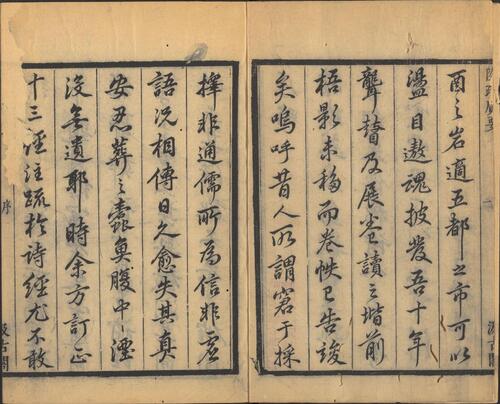 陸疏廣要
酉之岩適五都之市可以
盪目遨魂披發吾十年
聾瞽及展卷讀之堦前
梧影未移而卷帙已告竣
矣嗚呼昔人所謂窘于採
擇非通儒所為信非虛
語況相傳日久愈失其真
安忍葬之蠹魚腹中湮
沒無遺耶時余方訂正
十三經注疏於詩經尤不敢
序
汲古閣